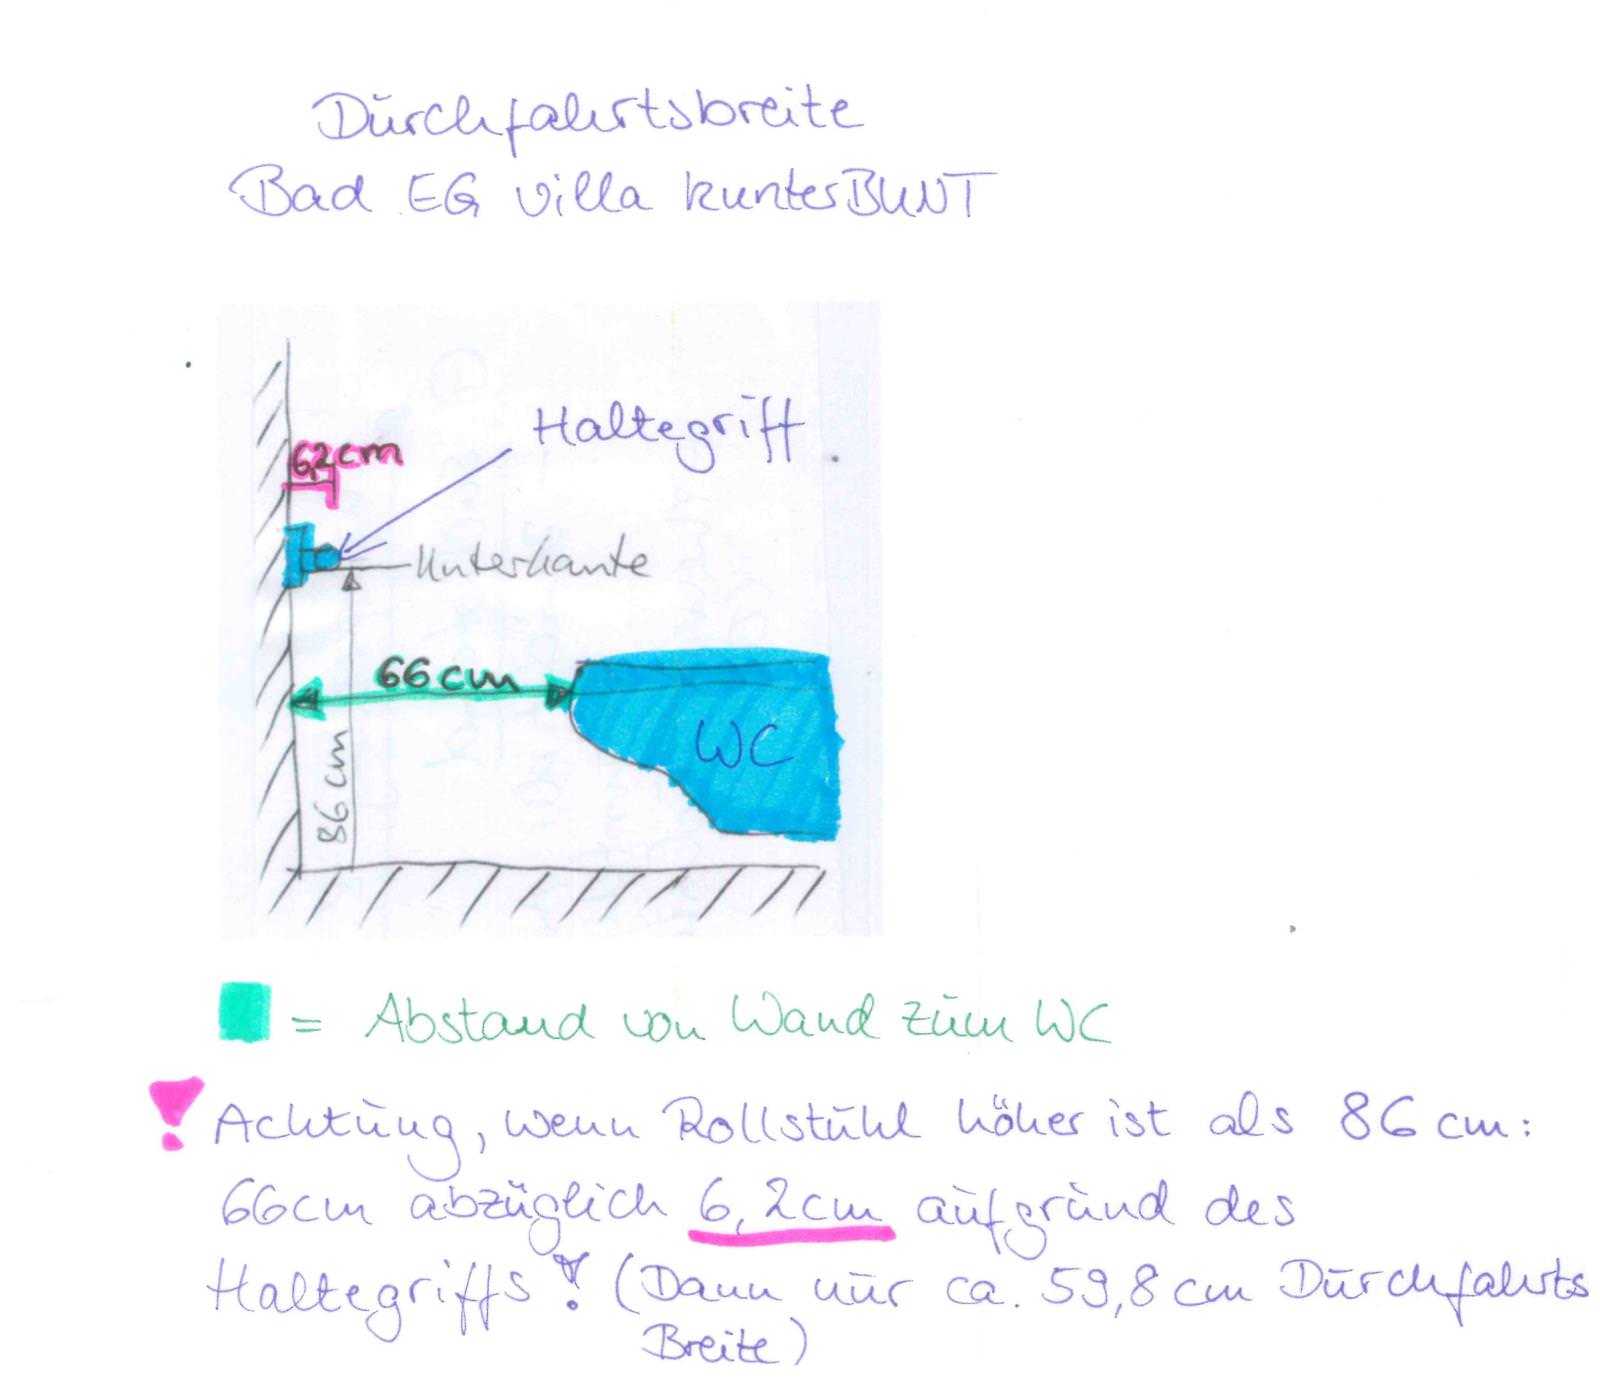 Durchfahrtsbreite
Bad EG Villa kunterBUNT
6,2cm
Haltegriff
Unterkante
66cm
WC
86cm
= Abstand von Wand zum WC
! Achtung, wenn Rollstuhl höher ist als 86cm:
66cm abzüglich 6,2cm aufgrund des
Haltegriffs! (Dann nur ca. 59,8cm Durchfahrts
Breite)